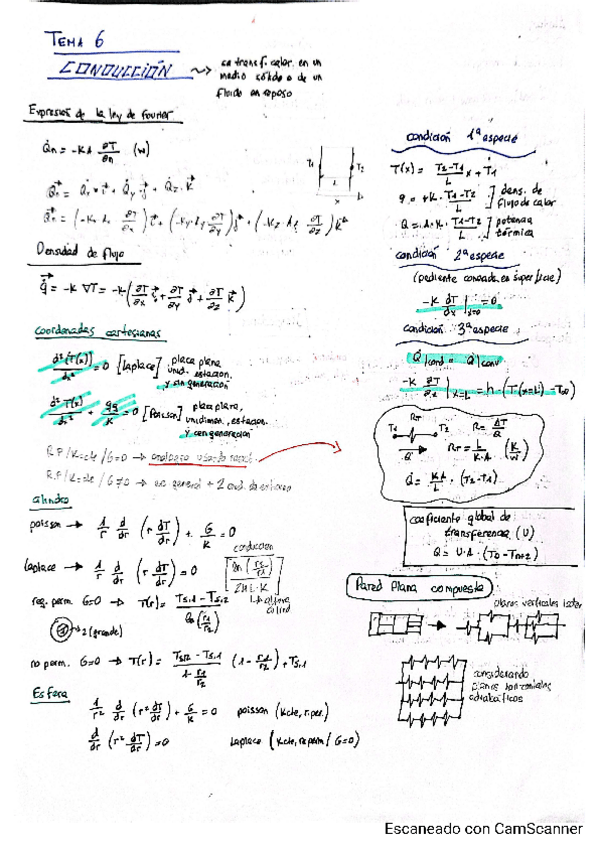 TEMA 6
CONDUCCIÓN
es transf. calor en un
medio sólido o de un
fluido en reposo
Expresión de la ley de Fourier
Q̇n = -K A ∂T/∂n (W)
Q̇n = Q̇x i + Q̇y j + Q̇z K
Q̇n = (-Kx Ax ∂T/∂x) i + (-Ky Ay ∂T/∂y) j + (-Kz Az ∂T/∂z) K
T1
T2
L
x
Densidad de flujo
q̇ = -K ∇T = -K (∂T/∂x i + ∂T/∂y j + ∂T/∂z K)
coordenadas cartesianas
d²(T(x))/dx² = 0 [Laplace] placa plana
unid. estacion.
y sin generación
d²T(x)/dx² + = 0 [Poisson] placa plana,
unidimen, estacion.
y con generación
R.P/K=cte/G=0 →
R.P/K=cte/G≠0 →
cilindro
poisson → 1/r d/dr (r dT/dr) + G/K = 0
laplace → 1/r d/dr (r dT/dr) = 0
conduccion
reg. perm. G=0 → T(r) =
2 (grande)
no perm. G=0 → T(r) = (1 - r1/r2) + Ts,1
Esfera
1/r² d/dr (r² dT/dr) + G/K = 0 poisson (Kcte, r.per.)
d/dr (r² dT/dr) = 0 Laplace (K.cte, re perm / G=0)
condición 1ª especie
T(x) = T2-T1/L x + T1
q = +K · T1-T2/L
dens. de
flujo de calor
Q = A·K· T1-T2/L
potencia
térmica
condición 2ª especie
-K dT/dx |x=0 = 0
condición 3ª especie
Q̇|cond = Q̇|conv
-K ∂T/∂x |x=L = h · (T(x=L) - T∞)
RT
T1
T2
R = ΔT/Q
RT = L/K·A (K/W)
Q̇ = KA/L · (T2-T1)
coeficiente global de
transferencia (U)
Pared Plana compuesta
planos verticales isoter
considerando
planos horizontales
adiabáticos
Escaneado con CamScanner